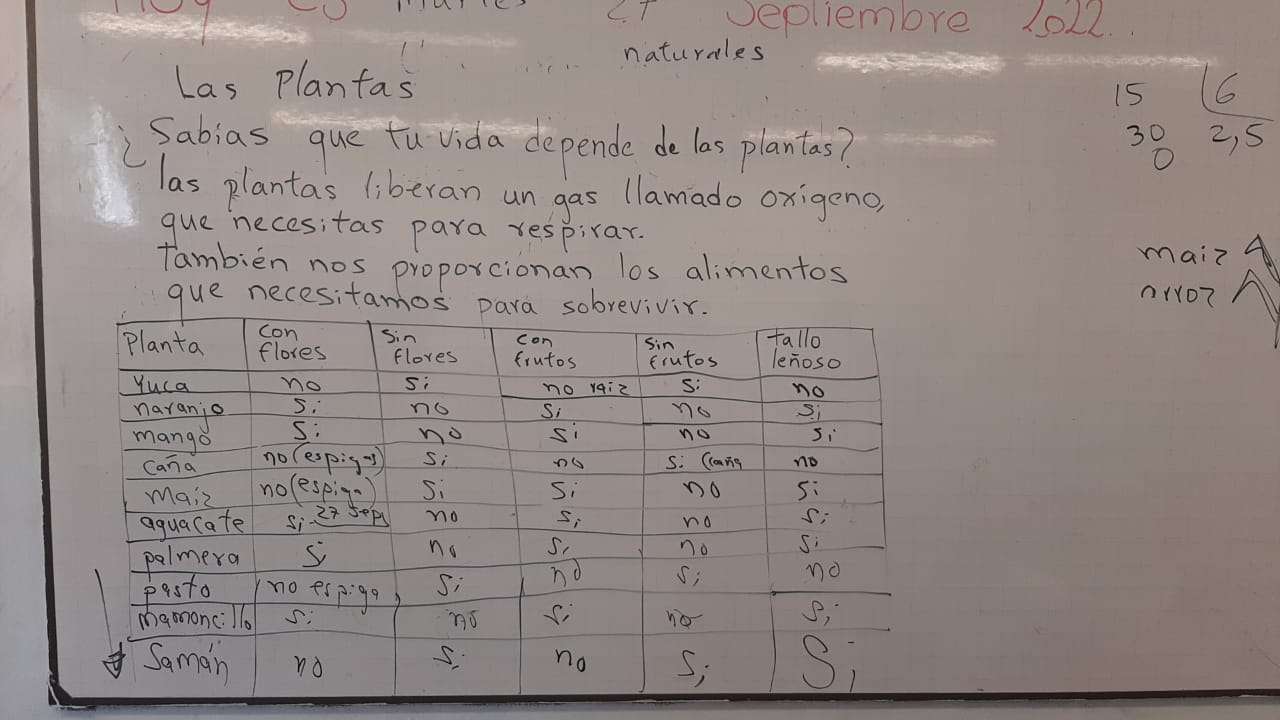 Hoy es martes 27 Septiembre 2022.
naturales
Las Plantas
¿Sabías que tu vida depende de las plantas?
las plantas liberan un gas llamado oxígeno,
que necesitas para respirar.
También nos proporcionan los alimentos
que necesitamos para sobrevivir.
Planta Con flores Sin flores Con frutos Sin frutos tallo leñoso
Yuca no Si no raiz Si no
naranjo Si no Si no Si
mango Si no Si no Si
Caña no (espigas) Si no Si (caña no
Maiz no (espiga) Si Si no Si
aguacate Si 27 Sep no Si no Si
palmera Si no Si no Si
pasto no espiga Si no Si no
Mamoncillo Si no Si no Si
Samán no Si no Si Si
15 6
30 2,5
0
maiz
arroz